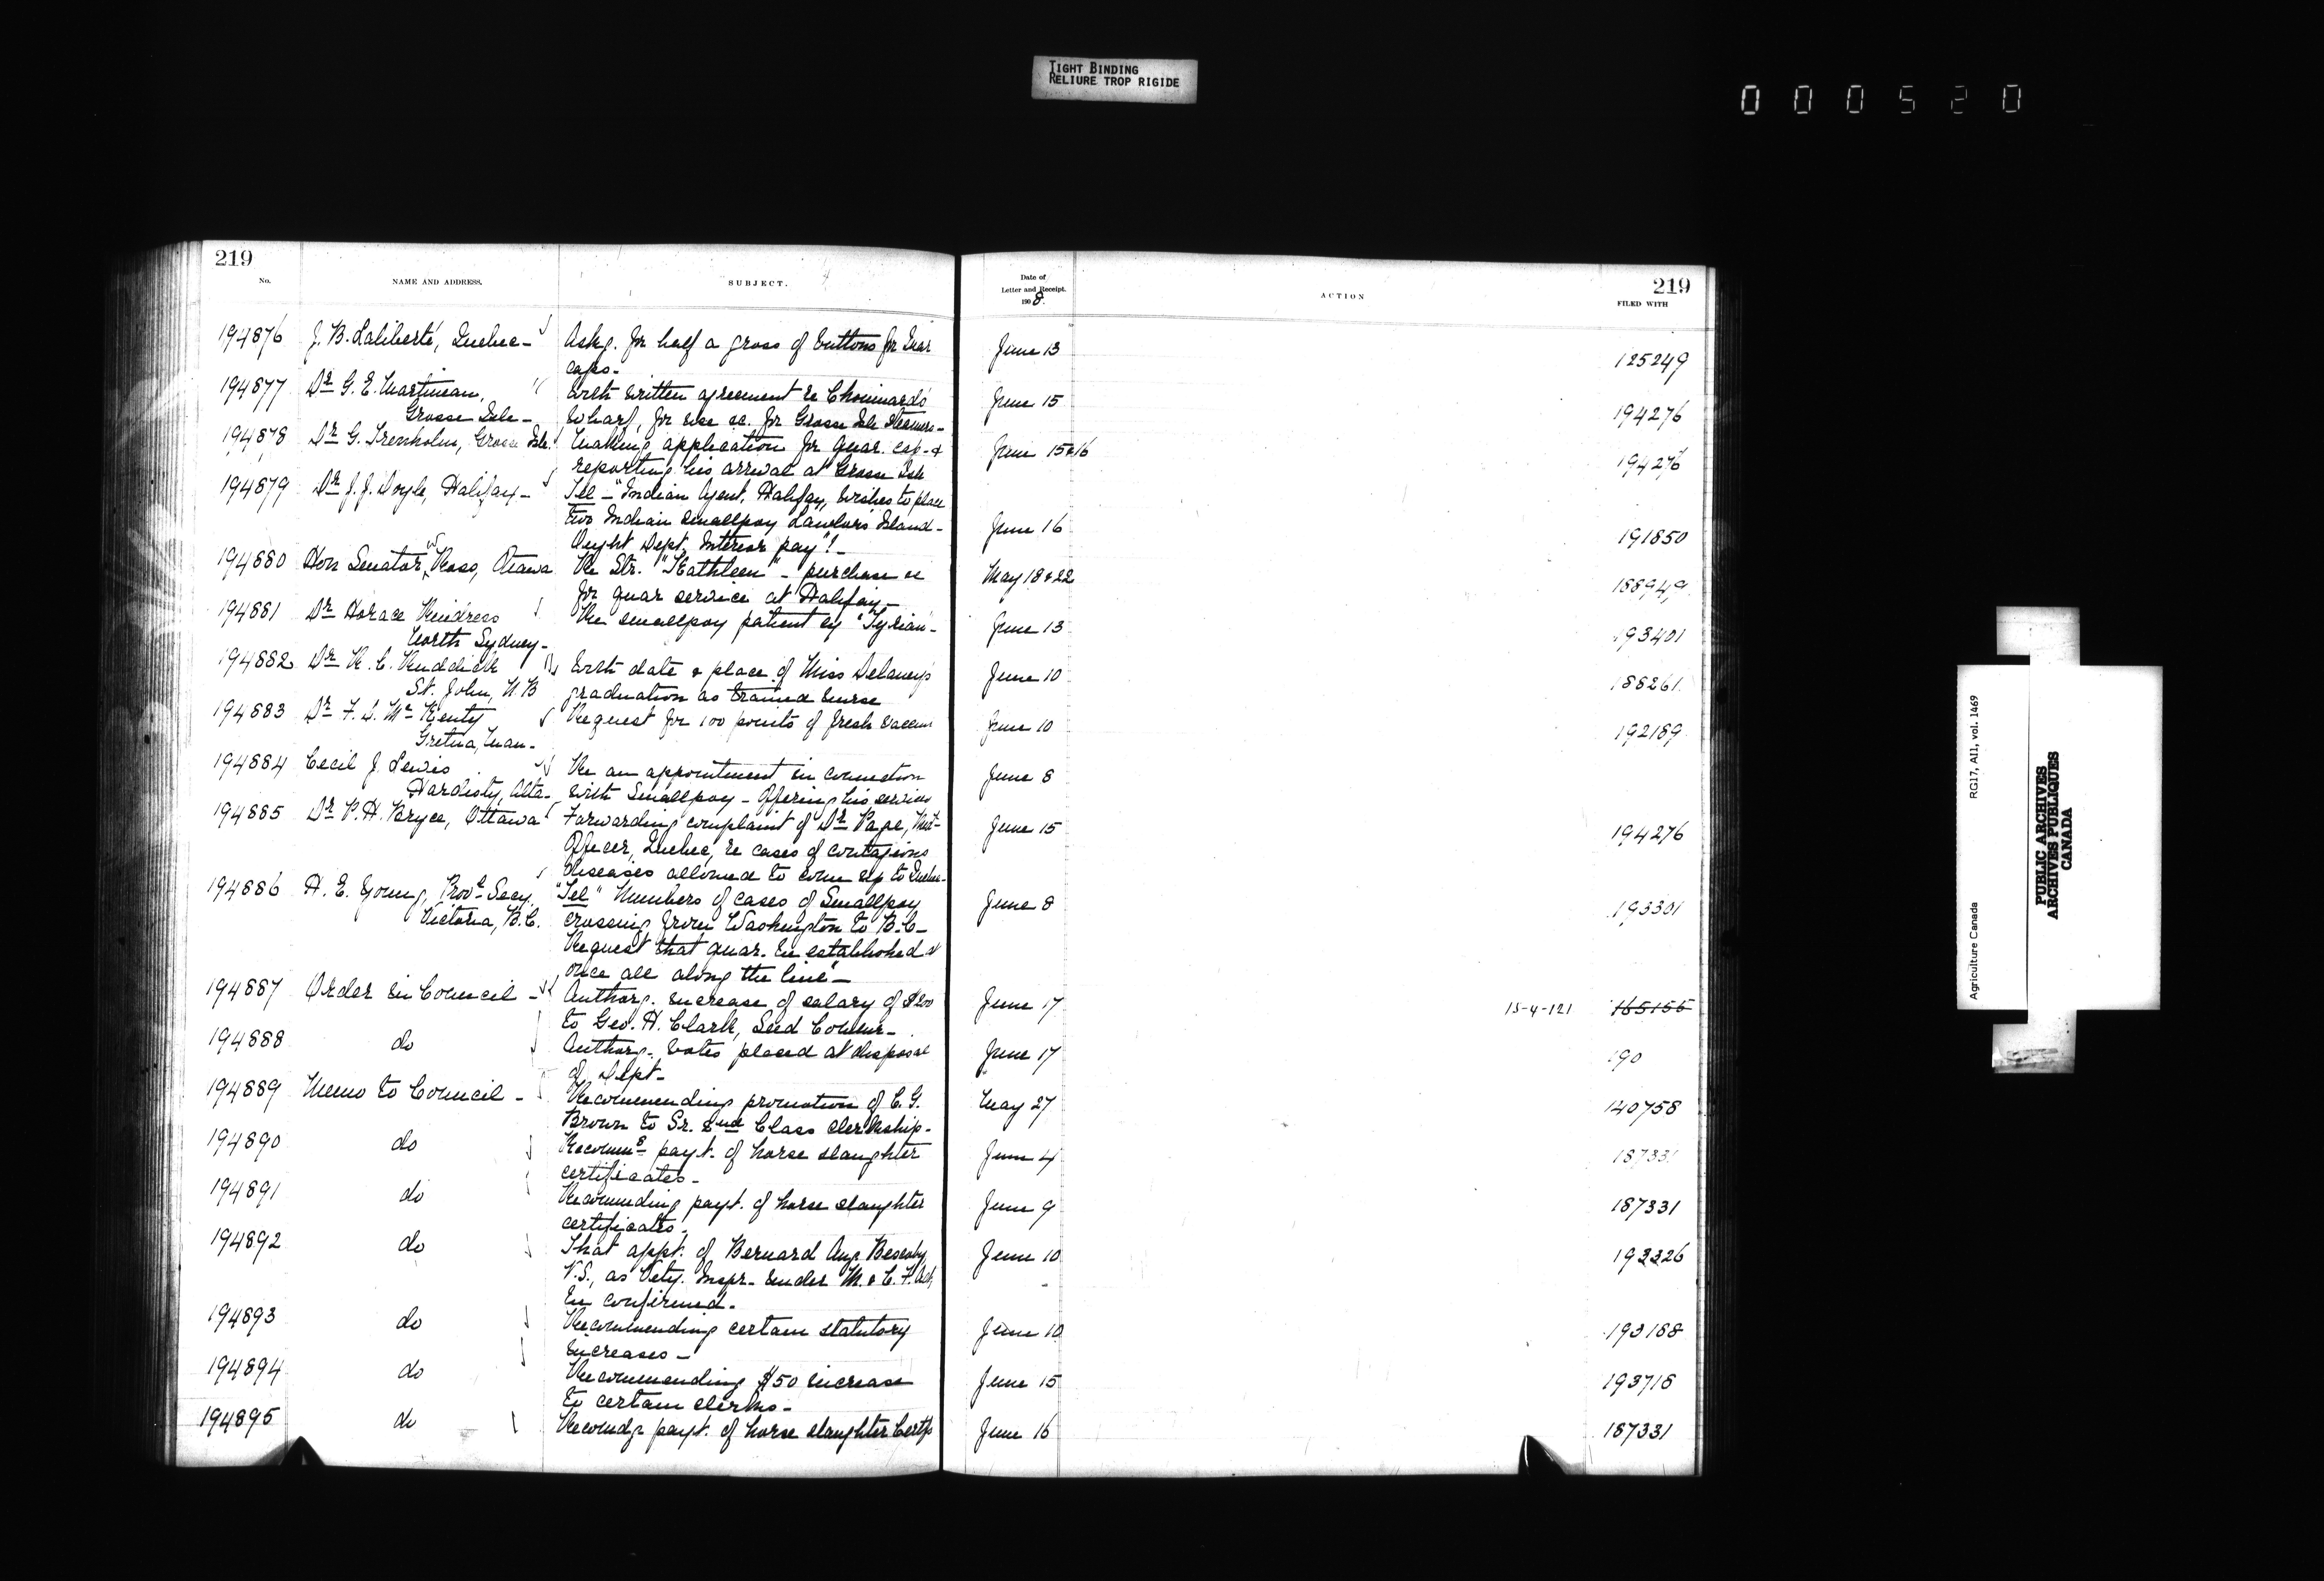 TIGHT BINDING
RELIURE TROP RIGIDE
000520
219
No.
NAME AND ADDRESS.
SUBJECT.
Date of
Letter and Receipt.
1908.
ACTION
219
FILED WITH
194876 J. B. Laliberté, Quebec - Askg. for half a gross of buttons for Quar June 13 125249
caps -
194877 Dr G. E. Martineau, With written agreement re Chouinard's June 15 194276
Grosse Isle - Wharf, for use &c. for Grosse Isle Steamers -
194878 Dr G. Trenholm, Grosse Isle. Making application for quar. cap - & June 15 & 16 194276
reporting his arrival at Grosse Isle
194879 Dr J. J. Doyle, Halifax - Tel - "Indian Agent, Halifax, wishes to place
two Indian smallpox Lawlor's Island - June 16 191850
Ought Dept. Interior pay"? -
194880 Hon Senator W Ross, Ottawa Re Str. "Kathleen" - purchase &c May 18 & 22 188949
for quar service at Halifax -
194881 Dr Horace Rindress Re smallpox patient ex "Tyrian" - June 13 193401
North Sydney -
194882 Dr R. C. Ruddick With date & place of Miss Delaney's June 10 188261
St. John, N.B graduation as trained nurse
194883 Dr F. D. Mc Kenty Request for 100 points of fresh vaccine June 10 192189
Gretna, Man -
194884 Cecil J. Lewis Re an appointment in connection June 8
Hardisty, Alta - with Smallpox - Offering his services
194885 Dr P. H. Bryce, Ottawa Forwarding complaint of Dr Page, June 15 194276
Officer, Quebec, re cases of contagious
diseases allowed to come up to Quebec -
194886 H. E. Young, Provl Secy, "Tel" Numbers of cases of Smallpox June 8 193301
Victoria, B.C. crossing from Washington to B.C. -
Request that quar. be established at
once all along the line" -
194887 Order in Council - Authorg. increase of salary of $200 June 17 15-4-121 165155
to Geo. H. Clark, Seed Commr -
194888 do Authorg. votes placed at disposal June 17 190
of Dept -
194889 Memo to Council - Recommending promotion of C. G. May 27 140758
Brown to Sr. 2nd Class clerkship -
194890 do Recommg payt. of horse slaughter June 4 187331
certificates -
194891 do Recommending payt. of horse slaughter June 9 187331
certificates -
194892 do That appt. of Bernard Aug. June 10 193326
V.S., as Vety. Inspr. under M. & C. F. Act,
be confirmed -
194893 do Recommending certain statutory June 10 193188
increases -
194894 do Recommending $50 increase June 15 193718
to certain clerks -
194895 do Recomdg payt. of horse slaughter Certfs June 16 187331
Agriculture Canada RG17, AI1, vol. 1469
PUBLIC ARCHIVES
ARCHIVES PUBLIQUES
CANADA